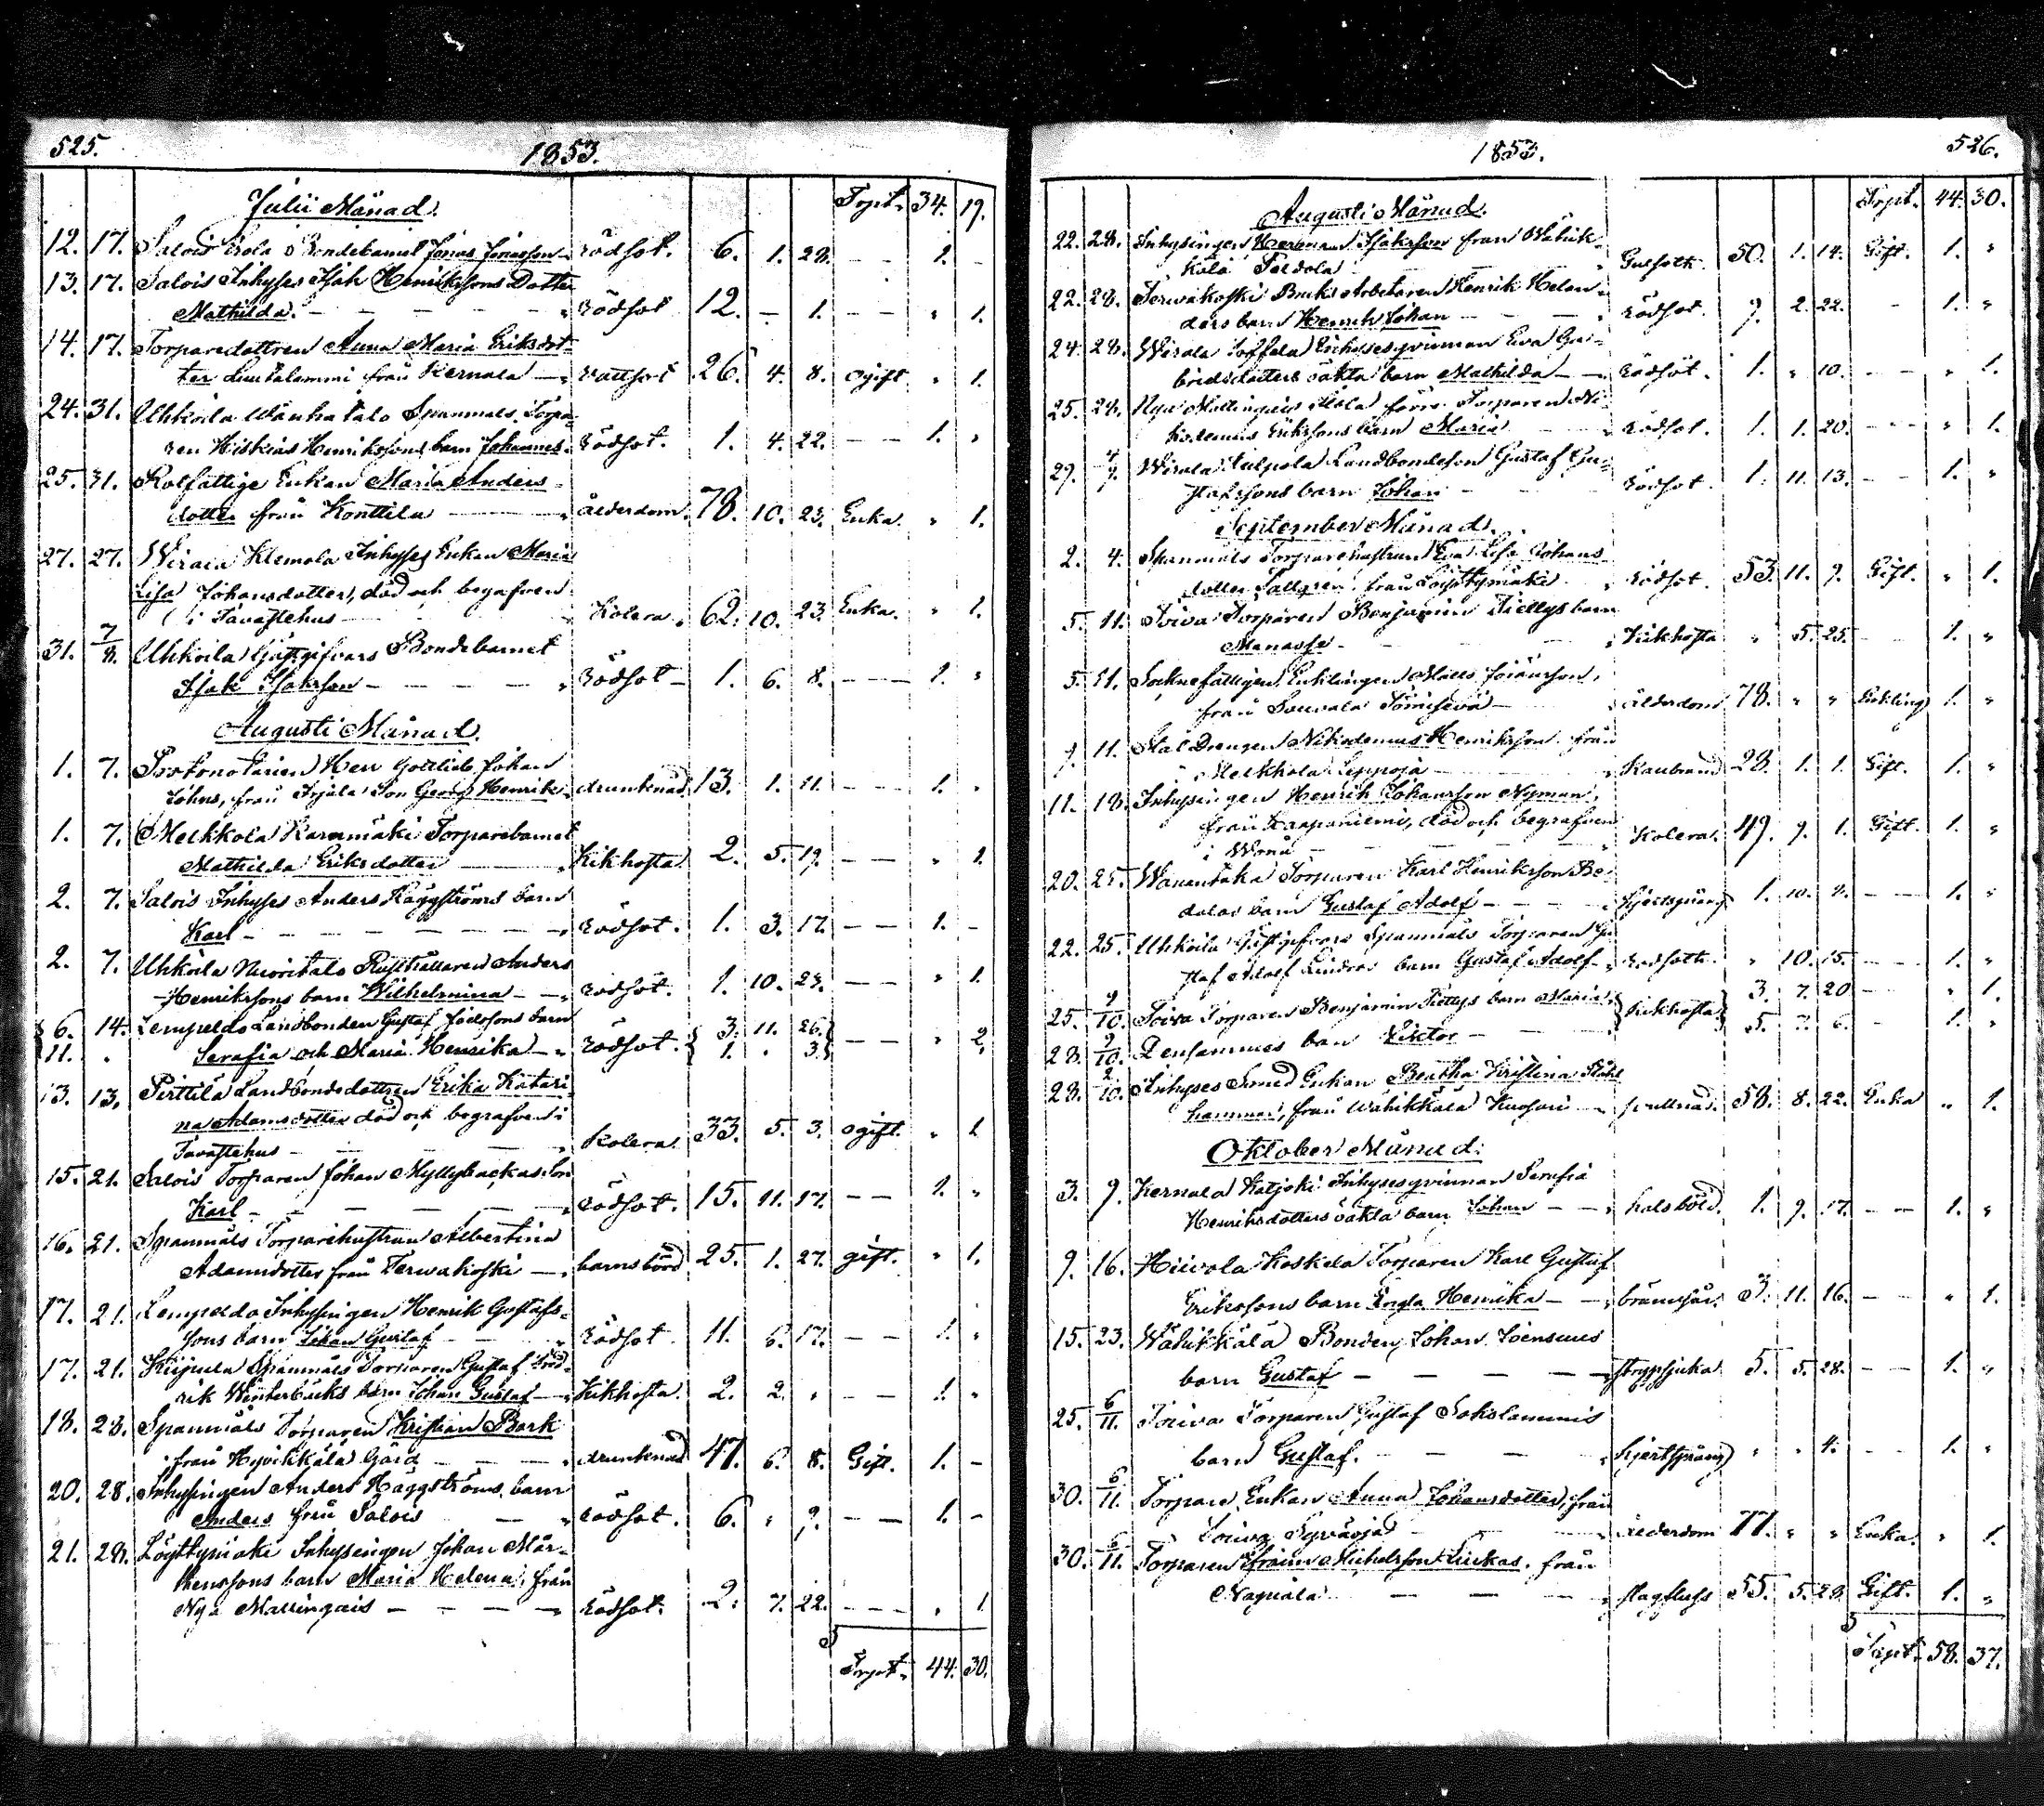 525.
1853.
Julii Månad.
Trspt. 34. 19.
12. 17. Salois Bondebarnet Jonas Jonasson rödsot. 6. 1. 28. — — 1. -
13. 17. Salois Inhyses Isak Henrikssons Dotter
Mathilda. — — rödsot 12. - 1. — — " 1.
14. 17. Torparedottren Anna Maria Eriksdot-
ter från Kernala — Vattsot 26. 4. 8. ogift " 1.
24. 31. Uhkoila Wanhatalo Spanmåls Torpa-
ren Hiskias Henrikssons barn Johannes. rödsot. 1. 4. 22. — — 1. "
25. 31. Rotfattige Enkan Maria Anders-
dotter från Konttila — ålderdom. 78. 10. 23. Enka. " 1.
27. 27. Klemola Inhyses Enkan Maria
Lisa Johansdotter, död och begrafven
i Tavastehus — Kolera. 62. 10. 23. Enka. " 1.
31. 7/8. Uhkoila Gästgifvars Bondebarnet
Isak Isaksson — — rödsot - 1. 6. 8. — — 1. "
Augusti Månad.
1. 7. Protonotarien Herr Gottlieb Johan
från Irjala Son Georg Henrik drunknad 13. 1. 11. — — 1. "
1. 7. Melkkola Torparebarnet
Mathilda Eriksdotter — Kikhosta 2. 5. 19. — — " 1.
2. 7. Salois Inhyses Anders Häggströms barn
Karl — — rödsot. 1. 3. 17. — — 1. -
2. 7. Uhkoila Rusthållaren Anders
Henrikssons barn Wilhelmina — rödsot. 1. 10. 23. — — " 1.
6. 14. Landbonden Gustaf barn
11. " Serafia och Maria Henrika — rödsot. 3. 11. 26. 1. " 3. — — " 2.
13. 13. Pirttilä Landbondedottren Erika Katari-
na Adamsdotter död och begrafven i
Tavastehus — Kolera. 33. 5. 3. ogift. " 1.
15. 21. Salois Torparen Johan Myllybackas Son
Karl — — rödsot. 15. 11. 17. — — 1. "
16. 21. Spanmåls Torparehustrun Albertina
Adamsdotter från Terwakoski — barnsbörd 25. 1. 27. gift. " 1.
17. 21. Inhysingen Henrik Gustafs-
sons barn Johan Gustaf — rödsot 11. 6. 17. — — 1. "
17. 21. Spanmåls Torparen Gustaf Fred-
rik Winterbäcks barn Johan Gustaf — Kikhosta. 2. 2. " — — 1. "
18. 28. Spanmåls Torparen Kristian Bark
från Hyvikkälä Gård — drunknad 47. 6. 8. Gift. 1. -
20. 28. Inhysingen Anders Häggströms barn
Anders från Salois — rödsot. 6. " 9. — — 1. -
21. 28. Löyttymäki Inhysingen Johan Mår-
tenssons barn Maria Helena, från
Nya Mallingais — — rödsot. 2. 7. 22. — — " 1.
Trspt. 44. 30.
1853.
526.
Augusti Månad.
Trspt. 44. 30.
22. 28. Inhysingen Herman Isaksson från Wähik-
kälä Peldola — Gulsoth. 50. 1. 14. Gift. 1. "
22. 28. Terwakoski Bruks Arbetaren Henrik Helan-
ders barn Henrik Johan — rödsot. 9. 2. 22. — 1. "
24. 28. Inhysesqvinnan Eva Ga-
brielsdotters oäkta barn Mathilda — rödsot. 1. " 10. — — " 1.
25. 28. Nya Mallingais förre Torparen Ni-
kodemus Erikssons barn Maria — rödsot. 1. 1. 20. — — " 1.
29. 4/9. Landbondeson Gustaf Gu-
stafssons barn Johan — rödsot. 1. 11. 13. — — 1. "
September Månad.
2. 4. Spanmåls Torparehustrun Eva Lisa Johans-
dotter från Löyttymäki rödsot. 53. 11. 9. Gift. " 1.
5. 11. Toiva Torparen Benjamin Tiellys barn
Manasse — Kikhosta " 5. 25. — — 1. "
5. 11. Socknefattigen, Enklingen Matts
från — ålderdom 78. " " Enkling 1. "
9. 11. Stal Drengen Nikodemus Henriksson från
Melkkola Leppoja — Kallbrand 28. 1. 1. Gift. 1. "
11. 18. Inhysingen Henrik Johansson Nyman,
från Kaapaniemi, död och begrafven
i Wånå — Kolera. 49. 9. 1. Gift. 1. "
20. 25. Wanantaka Torparen Karl Henriksson
barn Gustaf Adolf — Hjertsprång 1. 10. 2. — — 1. "
22. 25. Uhkoila Gästgifvars Spanmåls Torparen Gu-
staf Adolf Lindros barn Gustaf Adolf — rödsoth. " 10. 15. — — 1. "
25. 9/10. Toiva Torparen Benjamin Tiellys barn Maria Kikhosta 3. 7. 20 — " 1.
28. 9/10. Densammes barn Viktor — 5. 7. 6. — 1. "
28. 2/10. Inhyses Smed Enkan Beatha Kristina
hammar, från Wähikkälä — 58. 8. 22. Enka " 1.
Oktober Månad.
3. 9. Kernala Katjoki Inhysesqvinnan Serafia
Henriksdotters oäkta barn Johan — halsböld. 1. 9. 17. — — 1. "
9. 16. Hiivola Koskela Torparen Karl Gustaf
Erikssons barn Engla Henrika — brännsår. 3. 11. 16. — — " 1.
15. 23. Wähikkälä Bonden Johan Joensuus
barn Gustaf — — Strypsjuka 5. 5. 28. — — 1. "
25. 6/11. Toiva Torparen Gustaf
barn Gustaf. — Hjertsprång " " 4. — — 1. "
30. 6/11. Torpare Enkan Anna Johansdotter, från
Toiva Syväoja — ålderdom 77. " " Enka. " 1.
30. 6/11. Torparen Efraim Michelsson från
— — slagfluss 55. 5. 28. Gift. 1. "
Trspt. 58. 37.